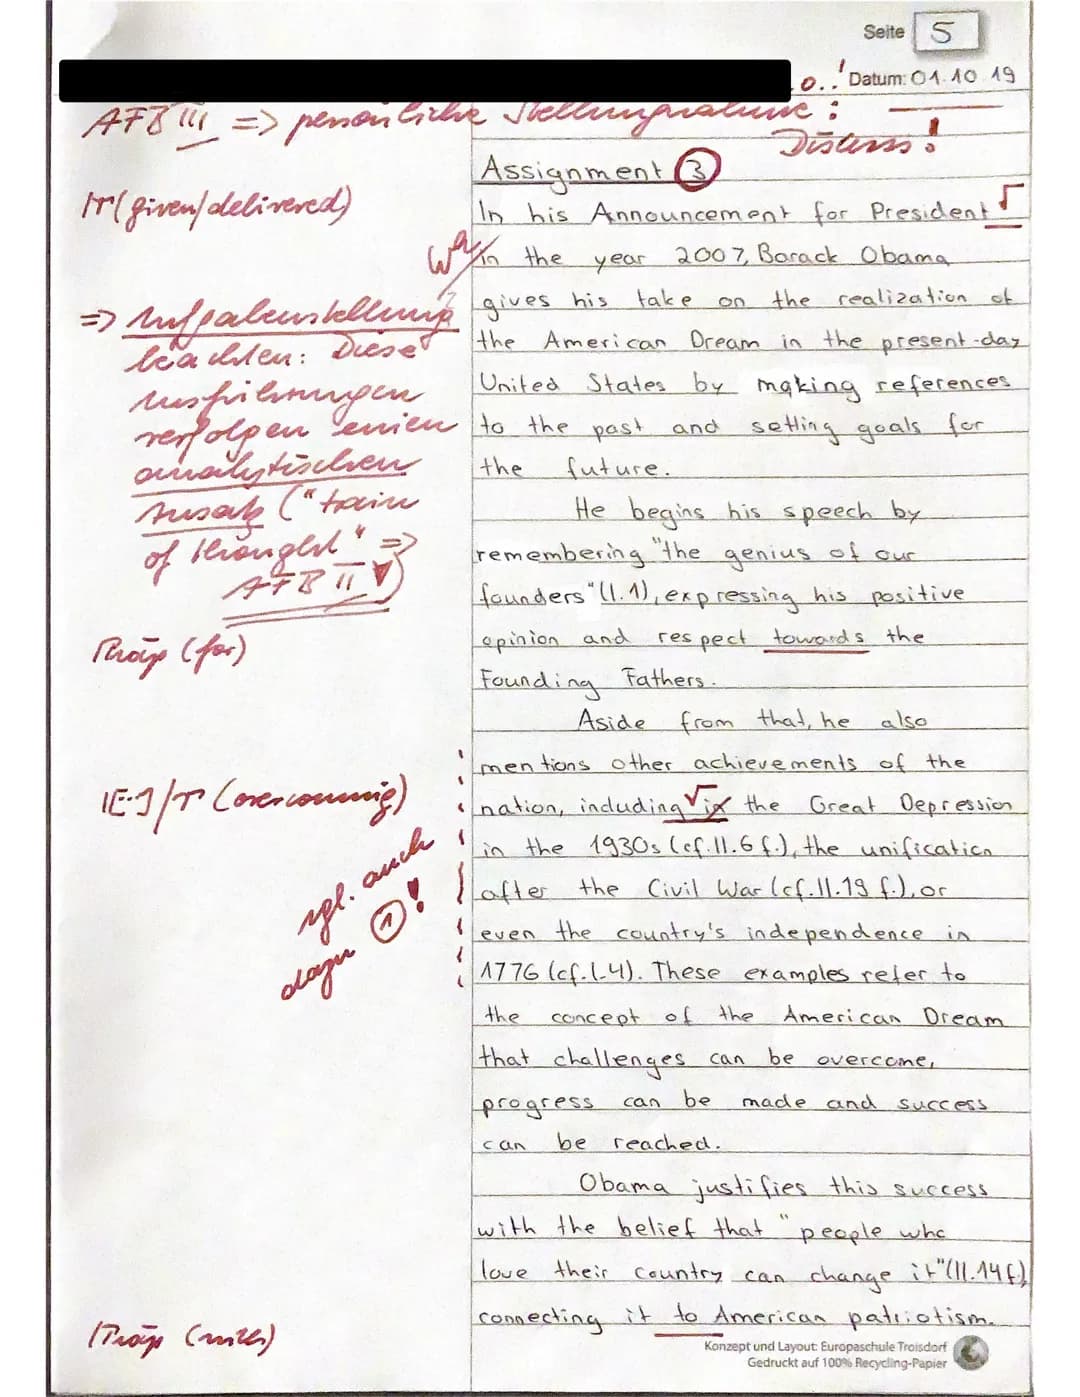 Seite 5
o..! Datum: 01.10.19
AFB III => persönliche Stellungnahme:
Discuss!
Assignment 3
(given/delivered)
In his Announcement for President
in the year 2007, Barack Obama
gives his take on the realization of
=> Aufgabenstellung
the American Dream in the present-day
beachten: Diese
United States by making references
Ausführungen
verfolgen einen
to the past and setting goals for
analytischen
the future.
Ansatz ("train
He begins his speech by
of thought" =>
remembering "the genius of our
AFB II)
founders" (l.1), expressing his positive
opinion and respect towards the
Präp (for)
Founding Fathers.
Aside from that, he also
mentions other achievements of the
[E.]/T (overcoming)
nation, including in the Great Depression
in the 1930s (cf.ll.6 f.), the unification
vgl. auch
after the Civil War (cf.ll.19 f.), or
dazu 1!
even the country's independence in
1776 (cf.l.4). These examples refer to
the concept of the American Dream
that challenges can be overcome,
progress can be made and success
can be reached.
Obama justifies this success
with the belief that "people who
love their country can change it" (ll.14f.)
connecting it to American patriotism.
Präp (with)
Konzept und Layout: Europaschule Troisdorf
Gedruckt auf 100% Recycling-Papier